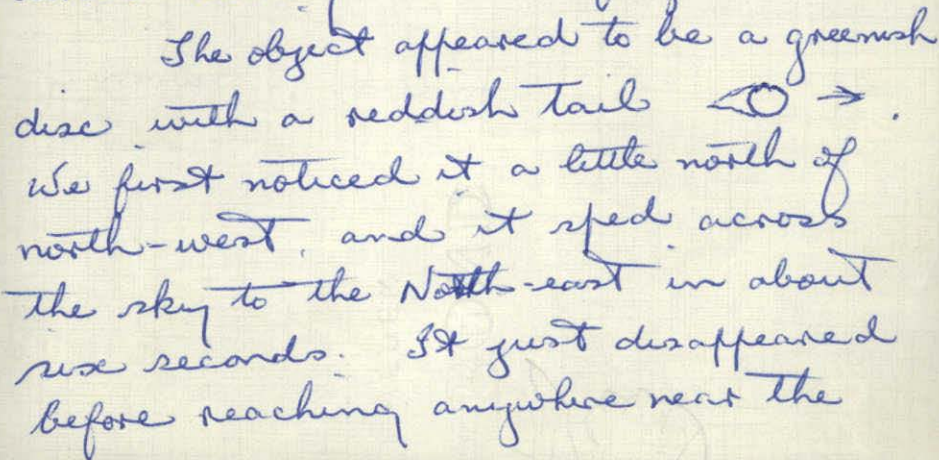 The object appeared to be a greenish
disc with a reddish tail →.
We first noticed it a little north of
north-west, and it sped across
the sky to the North-east in about
six seconds. It just disappeared
before reaching anywhere near the